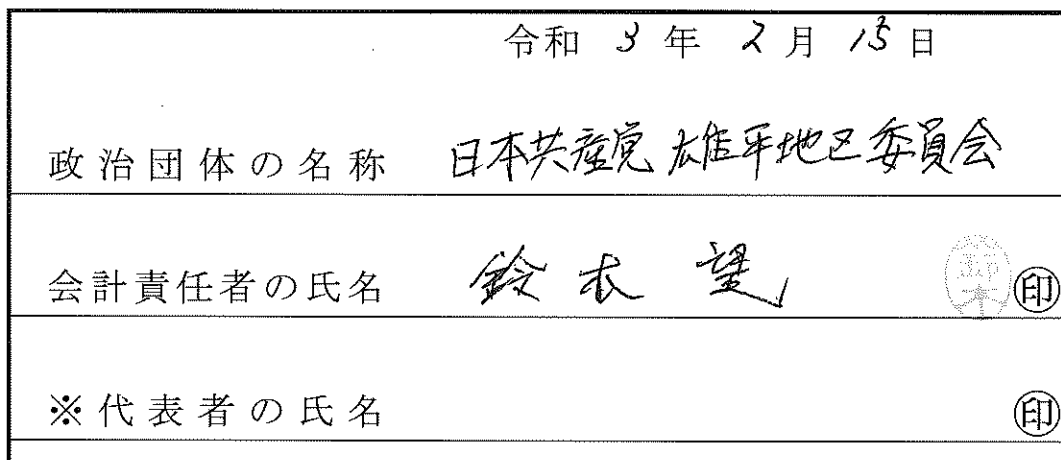 令和 3 年 2 月 15 日
政治団体の名称 日本共産党 雄平地区委員会
会計責任者の氏名 鈴木 望 鈴木 ㊞
※代表者の氏名 ㊞